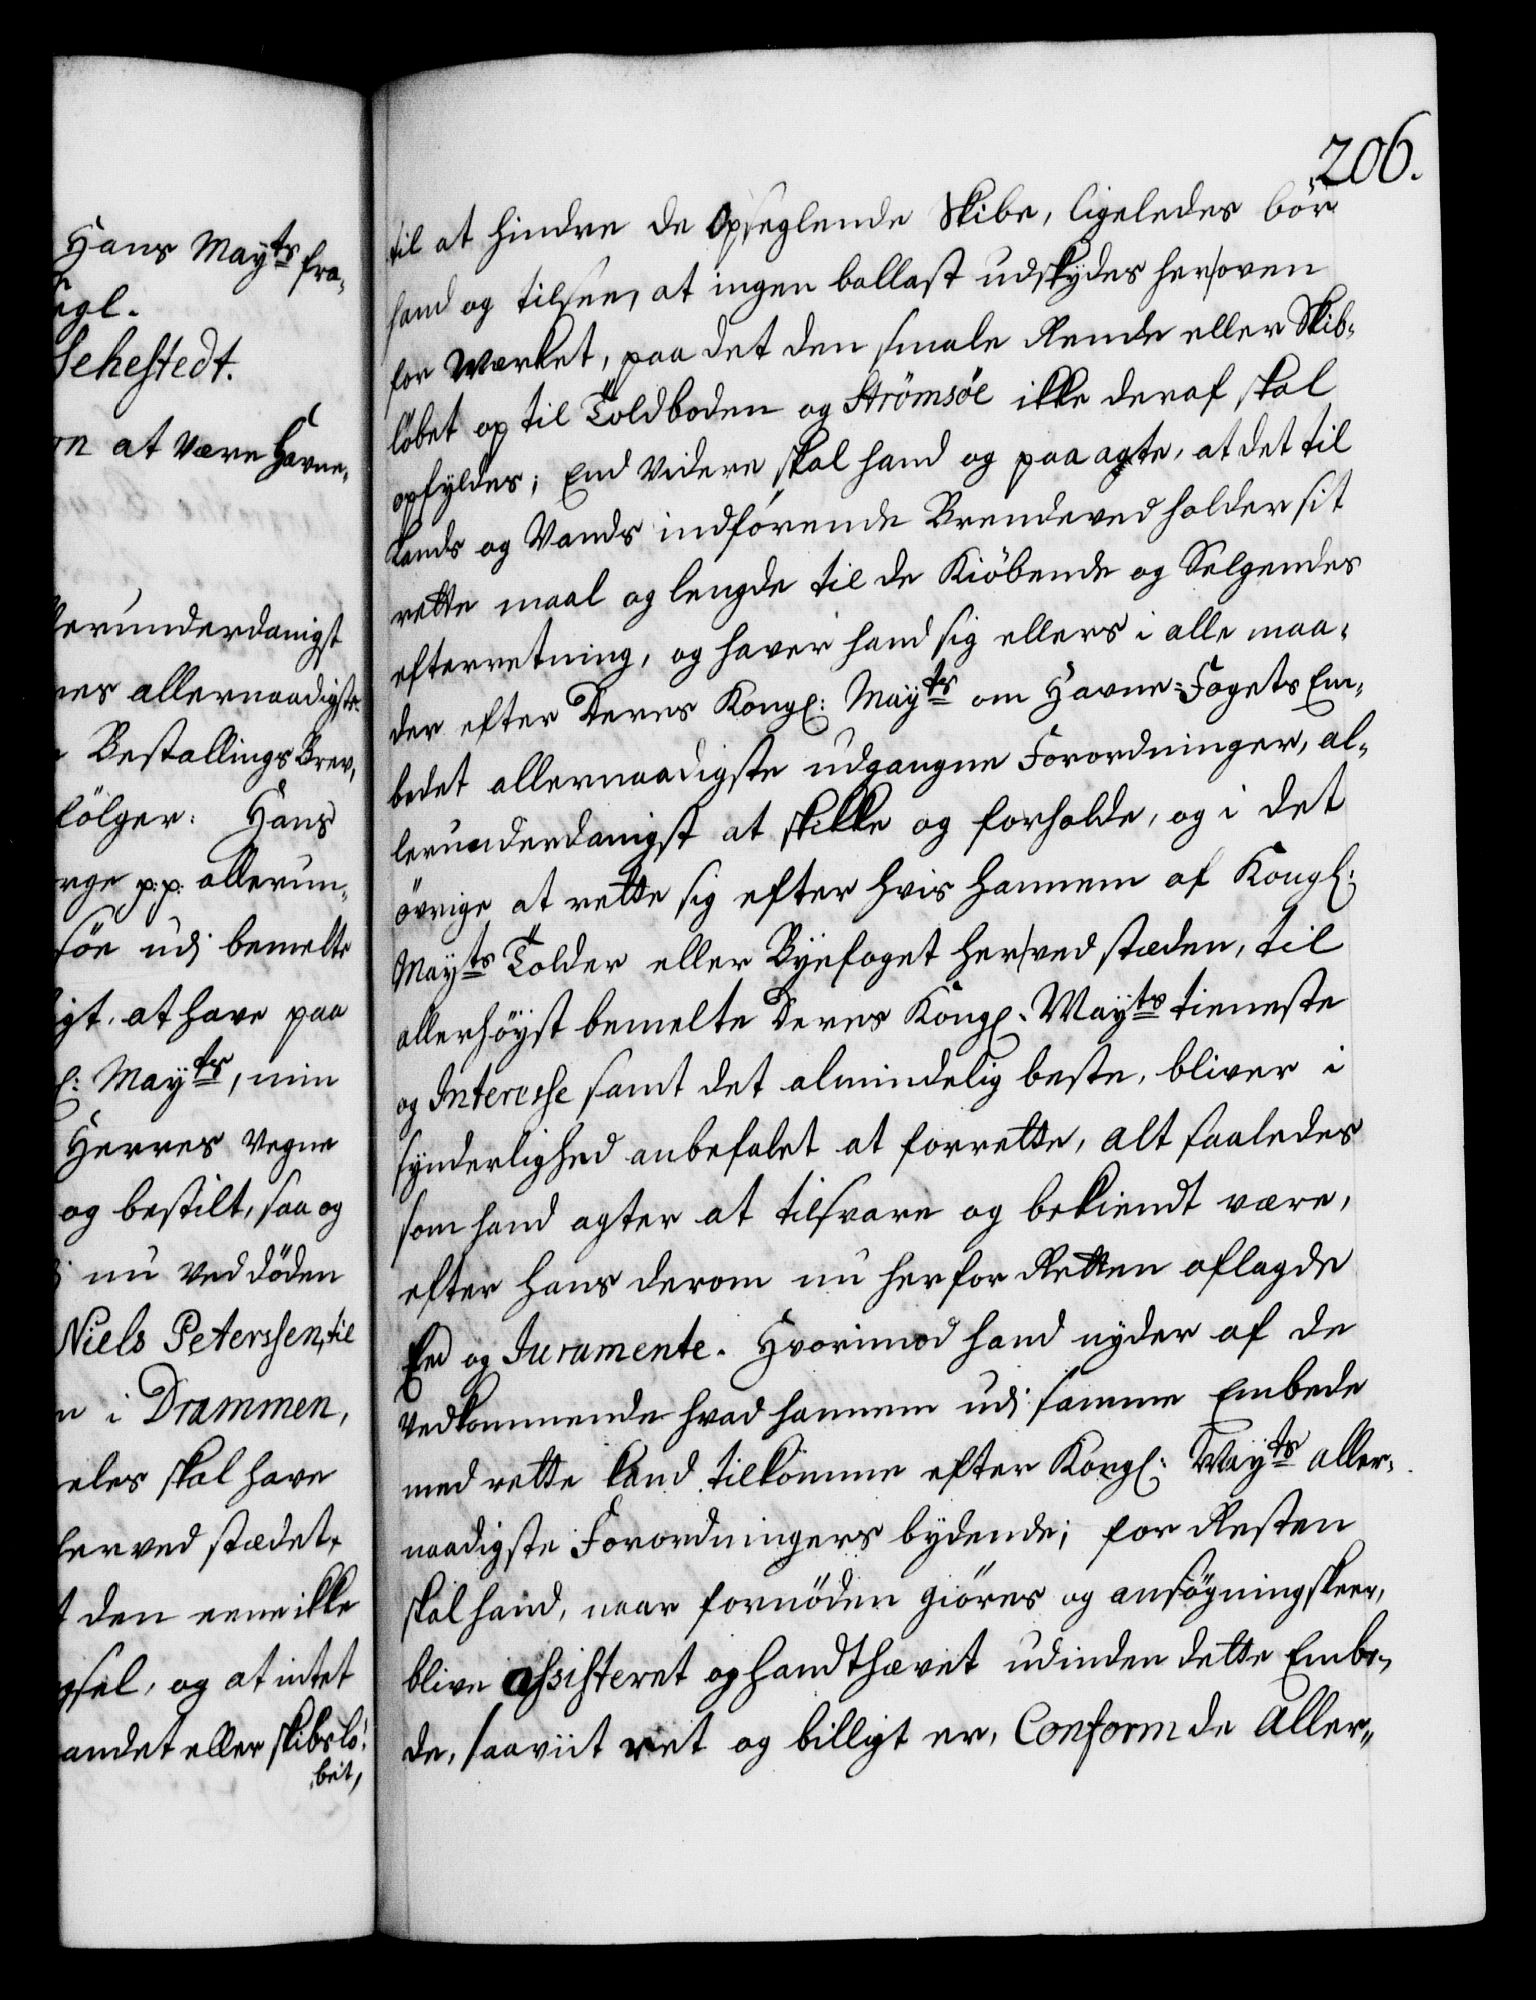 Hans Mayts fra„
egl.
Sehestedt.
on at være Havne„
lerunderdanigst
res allernaadigste
Bestallings Brev,
fölger: Hans
rge p.p. allerun„
söe udj bemelte
igt, at have paa
l: Mayts, min
Herres Vegne
og bestilt, saa og
nu ved döden
Niels Peterssen, til
n i Drammen,
eles skal have
her ved stædet,
t den eene ikke
gsel, og at intet
andet eller skibslö„
beit,
206.
til at hindre de Opseglende Skibe, ligeledes bör
hand og tilsee, at ingen ballast udskydes her oven
for Værket, paa det den smale Rende eller Skib„
löbet op til Toldboden og Strömsöe ikke deraf skal
opfyldes; End videre skal hand og paa agte, at det til
Lands og Vands indförende Brendeved holder sit
rette maal og lengde til de Kiöbende og Selgendes
efterretning, og haver hand sig ellers i alle maa„
der efter Deres Kongl: Mayts om Havne-Fogets Em„
bedet allernaadigste udgangne Forordninger, al„
lerunderdanigst at skikke og forholde, og i det
övrige at rette sig efter hvis hannem af Kongl:
Mayts Tolder eller Byefoget her ved stæden, til
allerhöyst bemelte Deres Kongl. Mayts tieneste
og Interesse samt det almindelig beste, bliver i
synderlighed anbefalet at forrette, alt saaledes
som hand agter at tilsvare og bekiendt være,
efter hans derom nu her for Retten aflagde
Eed og Juramente. Hvorimod hand nyder af de
Vedkommende hvad hannem udj samme Embede
med rette kand tilkomme efter Kongl: Mayts aller„
naadigste Forordningers bydende; for Resten
skal hand, naar fornöden giöres og ansögning skeer,
blive assisteret og handthævet udinden dette Embe„
de, saaviit ret og billigt er, Conform de Aller„